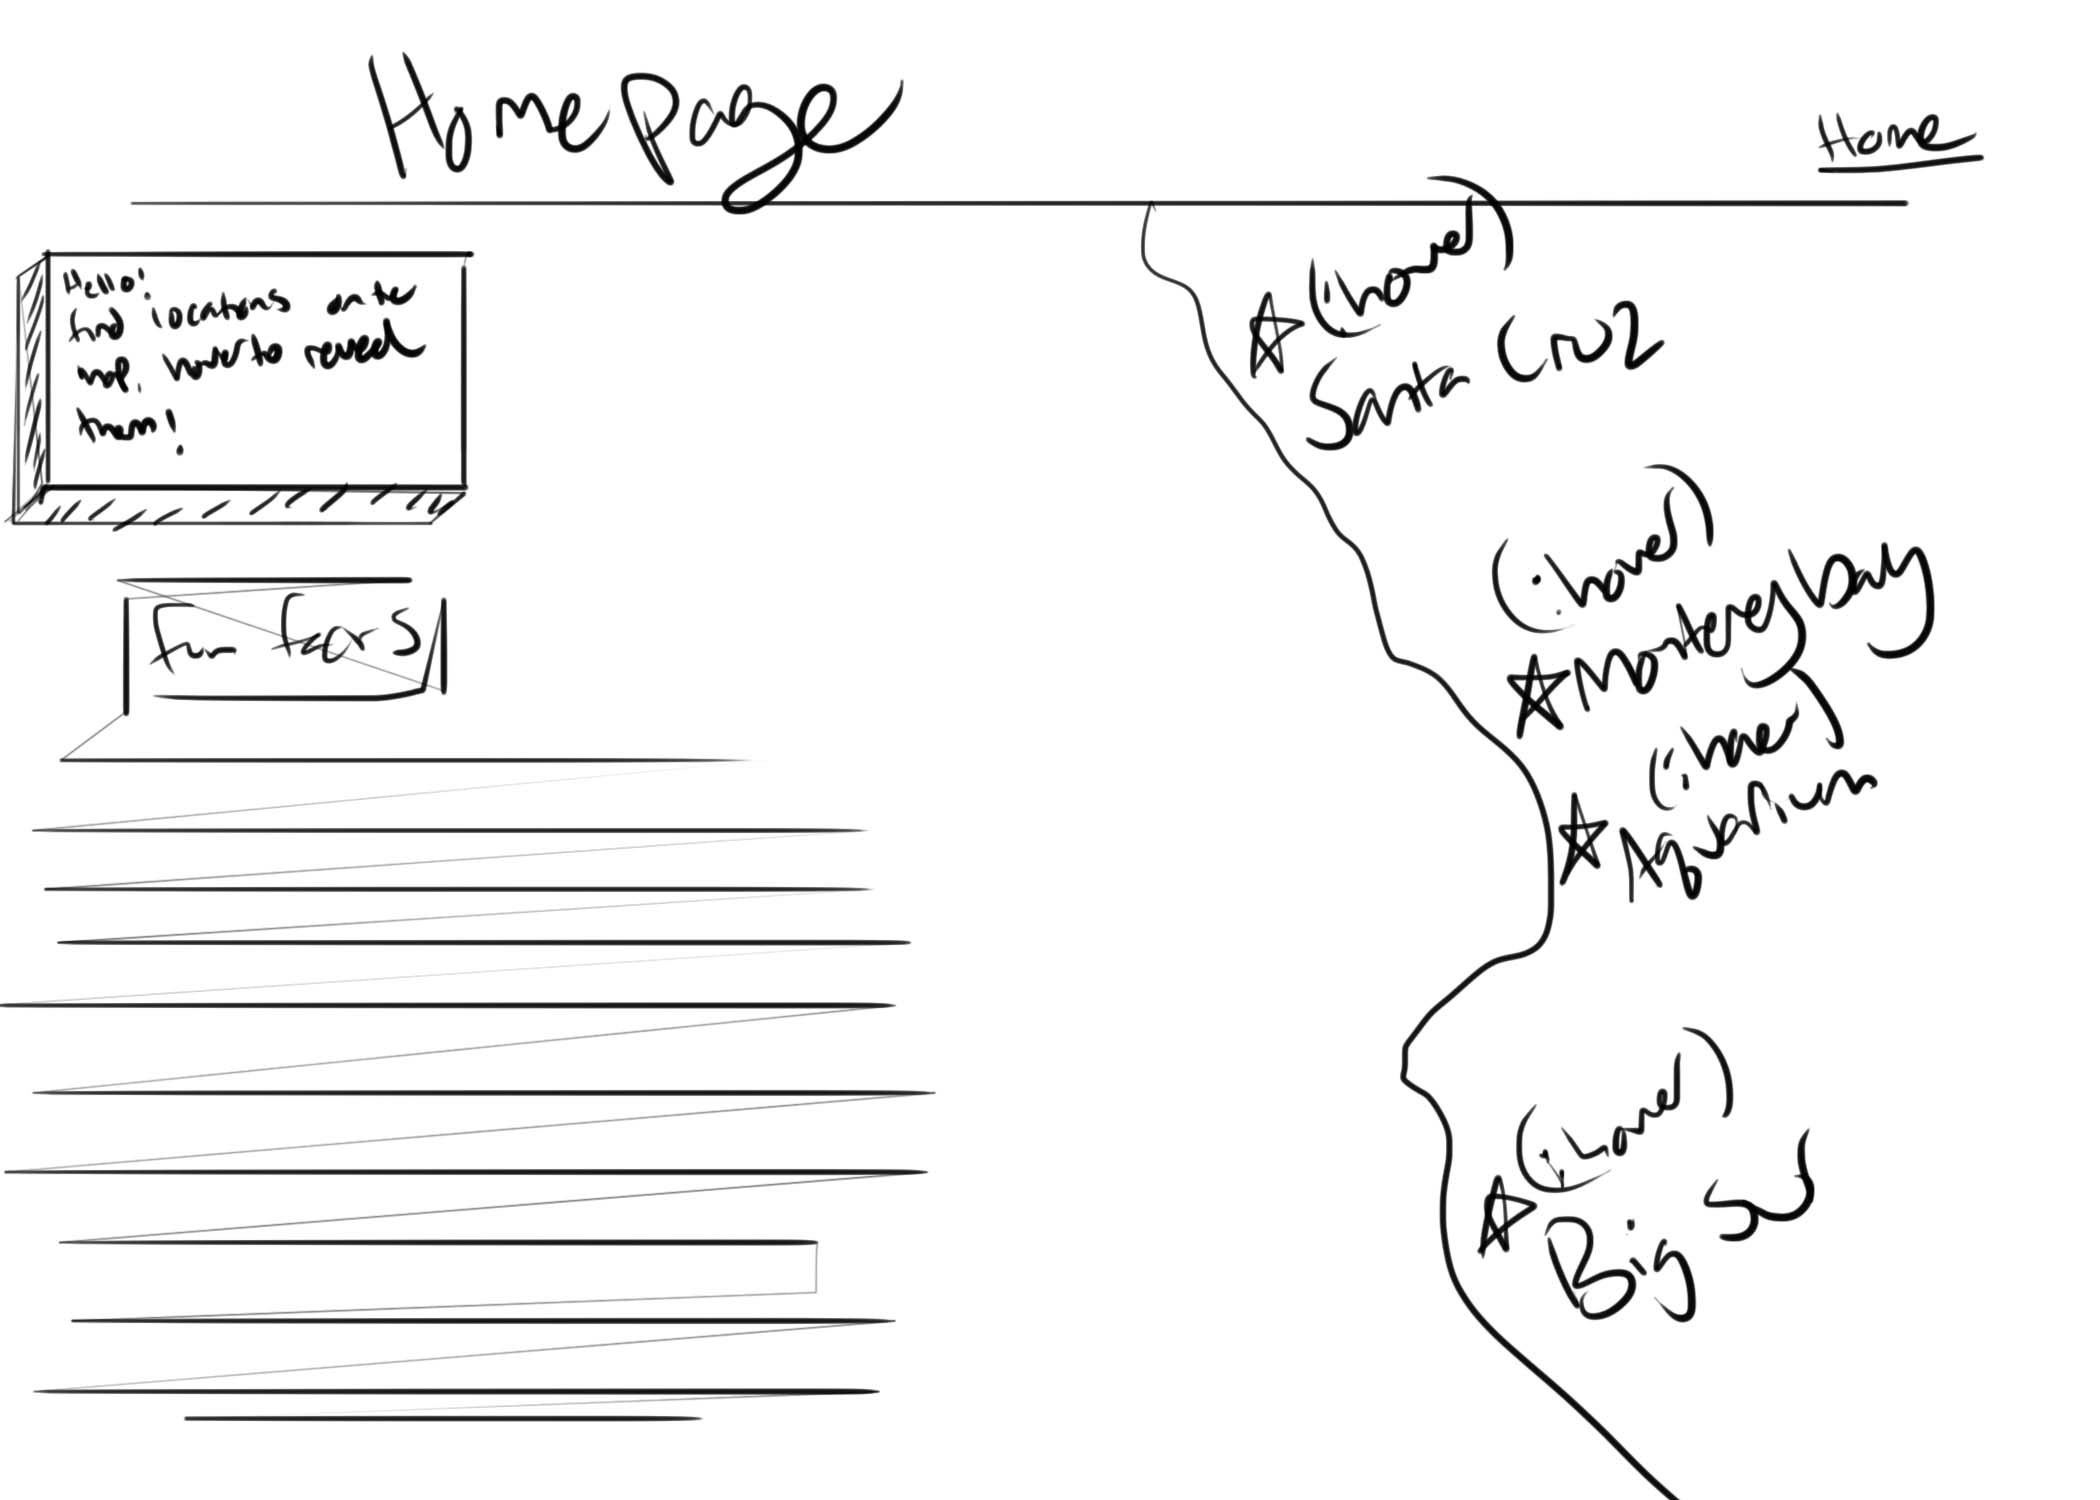 Home Page
Home
Hello!
find locations on the
map. hover to reveal
them!
Fun Facts
(:hover)
Santa Cruz
(:hover)
Monterey bay
(:hover)
Aquarium
(:hover)
Big Sur